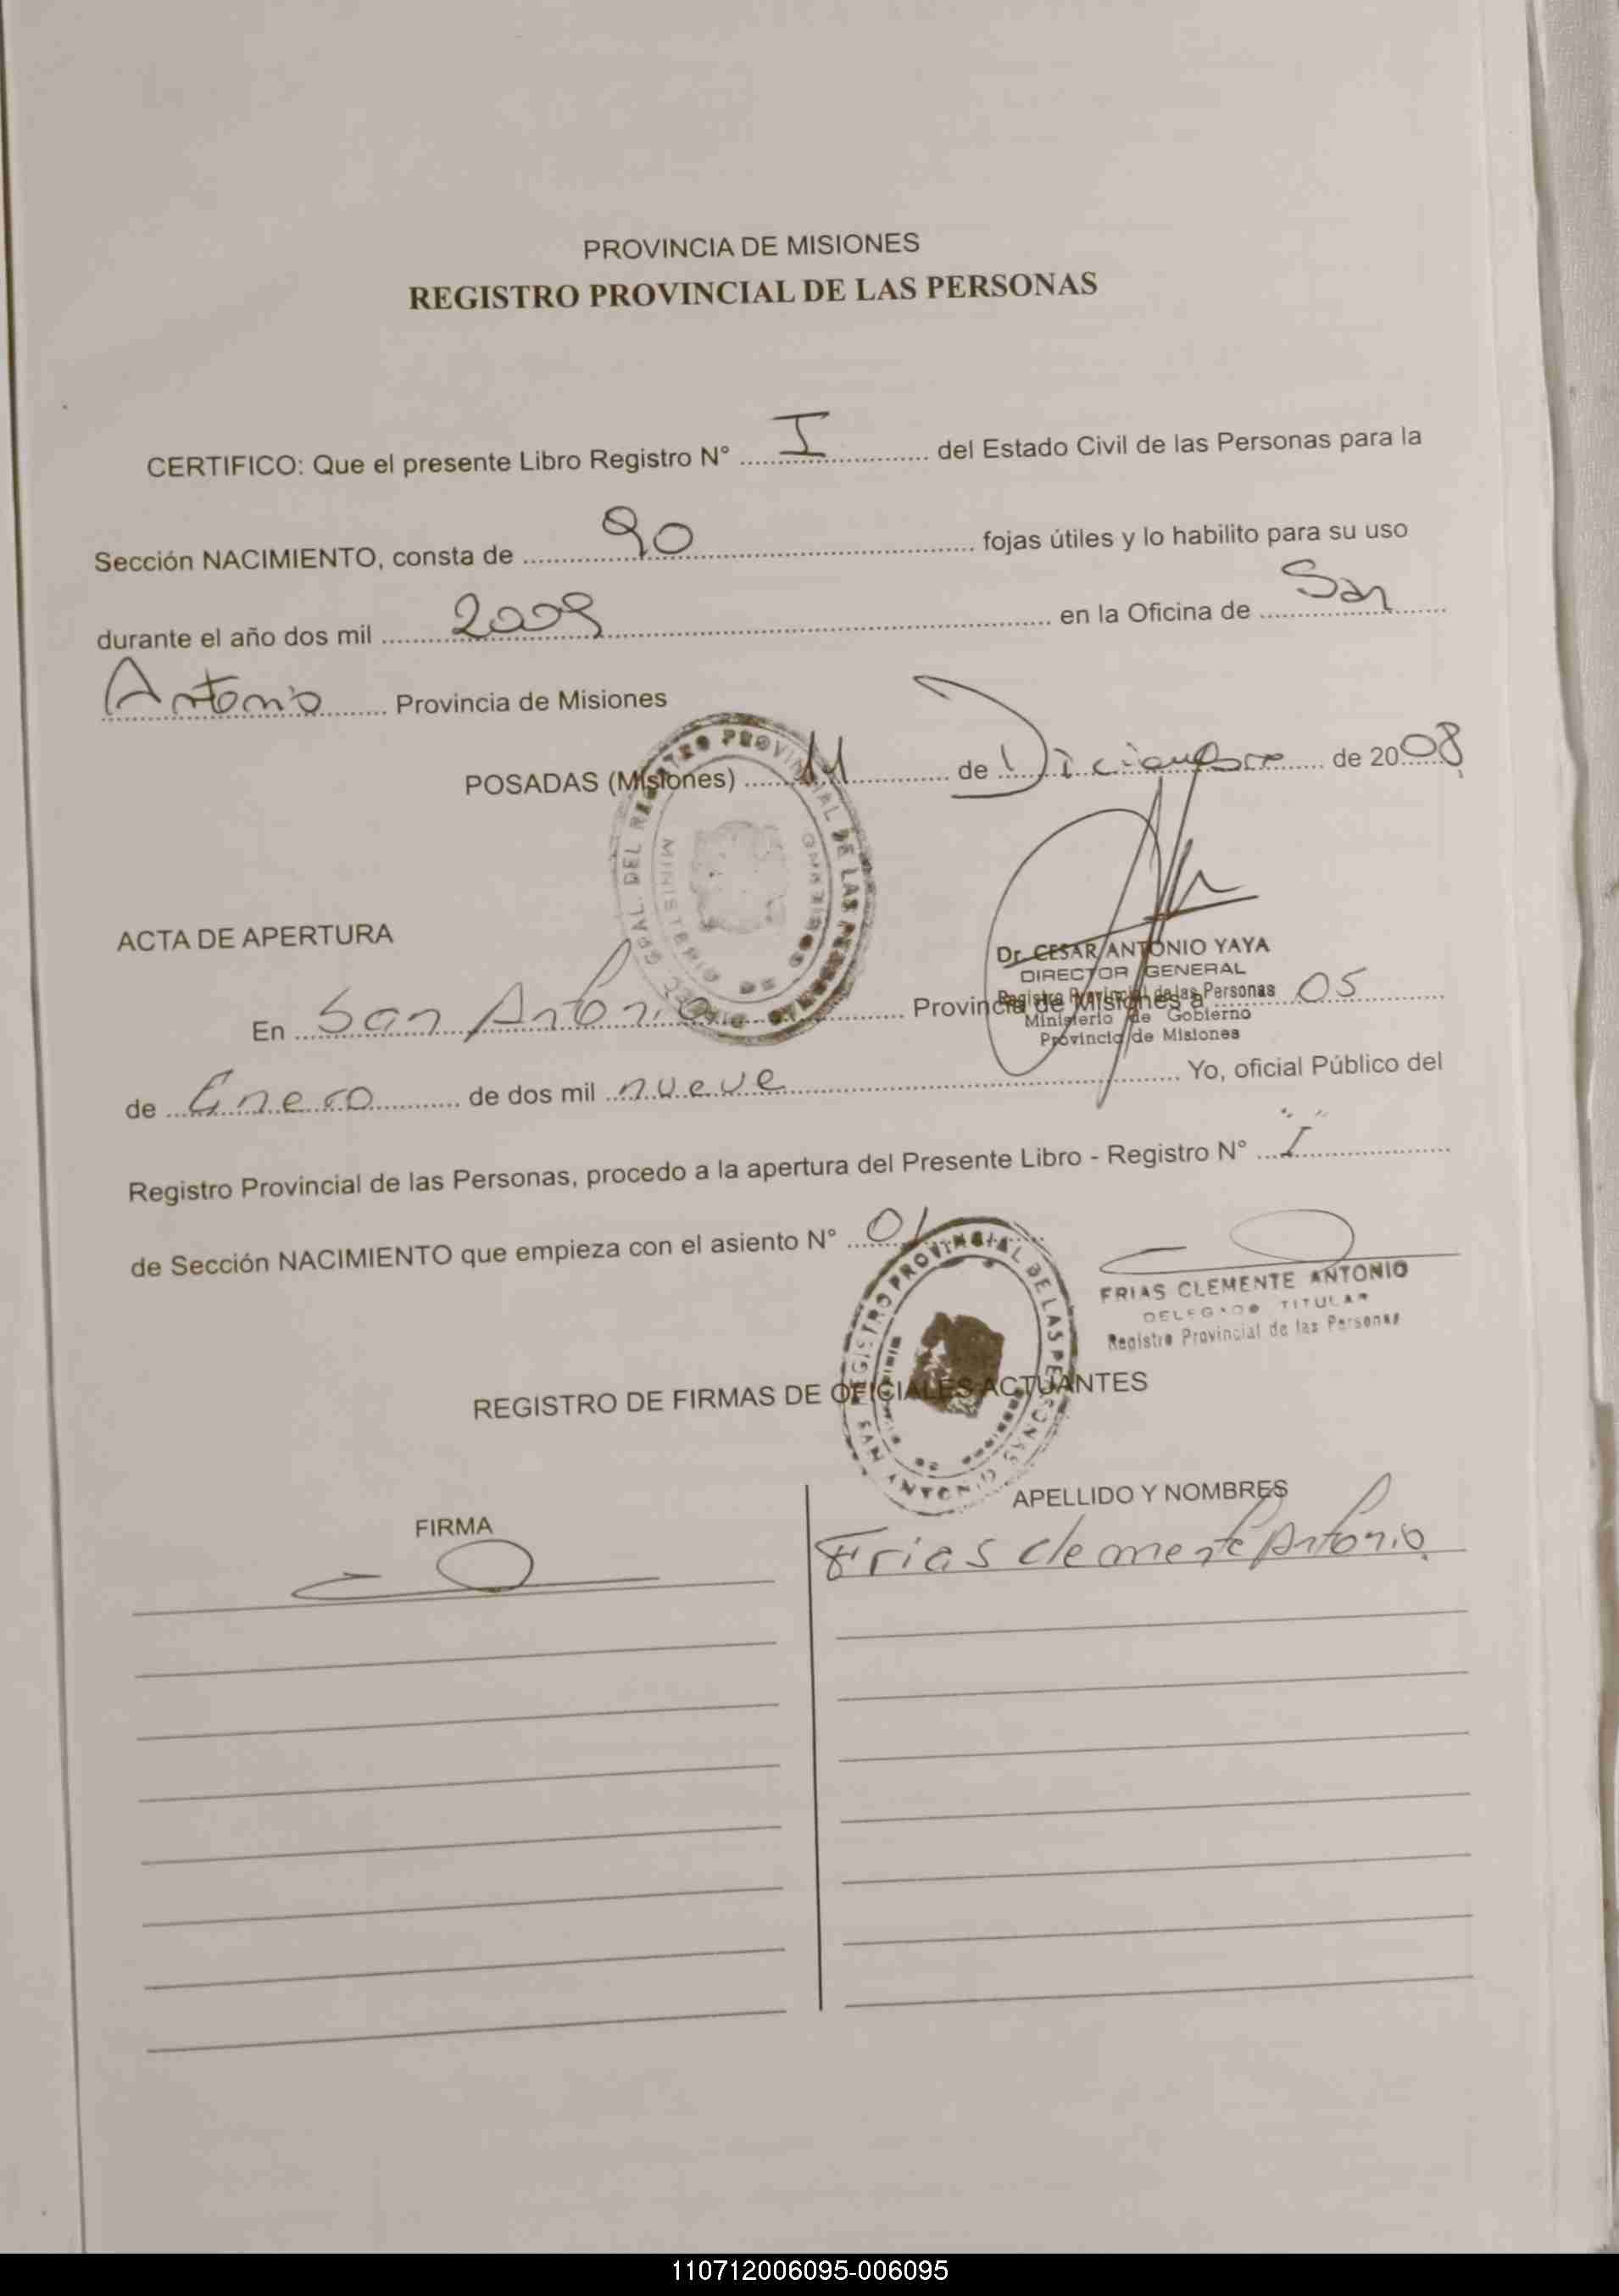 PROVINCIA DE MISIONES
REGISTRO PROVINCIAL DE LAS PERSONAS
CERTIFICO: Que el presente Libro Registro N° I del Estado Civil de las Personas para la
Sección NACIMIENTO, consta de 90 fojas útiles y lo habilito para su uso
durante el año dos mil 2009 en la Oficina de San
Antonio Provincia de Misiones
POSADAS (Misiones) 11 de Diciembre de 2008
GRAL. DEL REGISTRO PROVINCIAL DE LAS PERSONAS
MINISTERIO DE GOBIERNO
Dr. CESAR ANTONIO YAYA
DIRECTOR GENERAL
Registro Provincial de las Personas
Ministerio de Gobierno
Provincia de Misiones
ACTA DE APERTURA
En San Antonio Provincia de Misiones a 05
de Enero de dos mil nueve Yo, oficial Público del
Registro Provincial de las Personas, procedo a la apertura del Presente Libro - Registro N° "I"
de Sección NACIMIENTO que empieza con el asiento N° 01
REGISTRO PROVINCIAL DE LAS PERSONAS
SAN ANTONIO
FRIAS CLEMENTE ANTONIO
DELEGADO TITULAR
Registro Provincial de las Personas
REGISTRO DE FIRMAS DE OFICIALES ACTUANTES
FIRMA APELLIDO Y NOMBRES
Frias Clemente Antonio
110712006095-006095